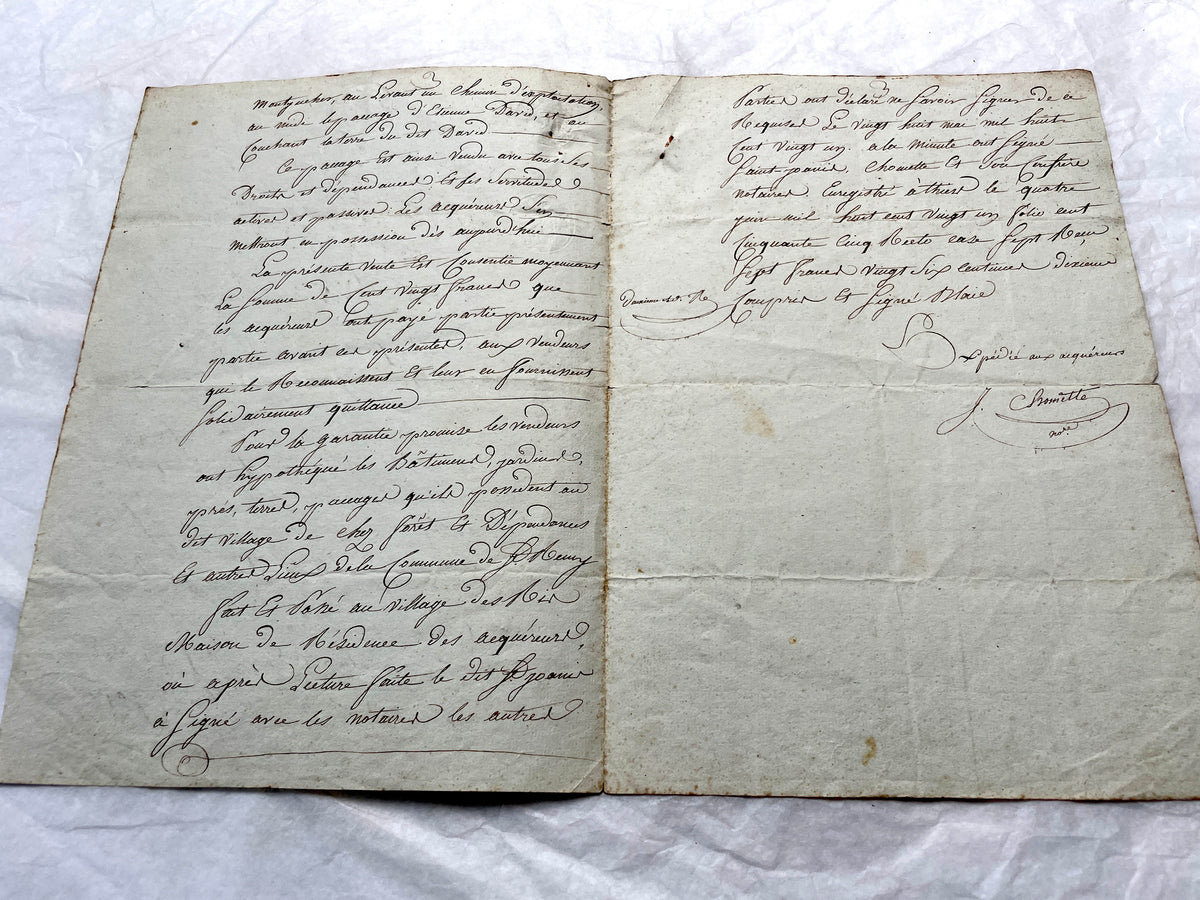 Montgucher, au Levant un Chemin d'exploitation
au midi le pacage d'Etienne David, et au
Couchant la terre du dit David
Ce pacage Est ainsi vendu avec tous ses
Droits et dépendances Et ses Servitudes
actives et passives Les acquéreurs s'en
mettront en possession dès aujourd'hui
La présente vente Est Consentie moyennant
La Somme de Cent Vingt francs que
les acquéreurs ont payé partie présentement
partie avant ces présentes, aux Vendeurs
qui le Reconnaissent Et leur en fournissent
solidairement quittance
Pour la garantie promise les vendeurs
ont hypothéqué les Bâtiments, jardins,
prés, terres, pacages qu'ils possèdent au
dit village de chez forêt Et Dépendances
Et autres Lieux de la Commune de St Remy
fait Et Passé au Village des
Maison de Résidence des acquéreurs,
où après Lecture faite le dit St joanis
à Signé avec les notaires les autres
Parties ont déclaré ne Savoir Signer de ce
Requises Le vingt huit mai mil huit
Cent vingt un. a la minute ont Signé
Saint joanis, Chomette Et Son Confrère
notaires. Enregistré à thiers le quatre
juin mil huit cent vingt un folio cent
Cinquante Cinq Recto case Sept Reçu
Sept francs vingt Six centimes dixième
Compris Et Signé
Expédié aux acquéreurs
J. Chomette
nore.